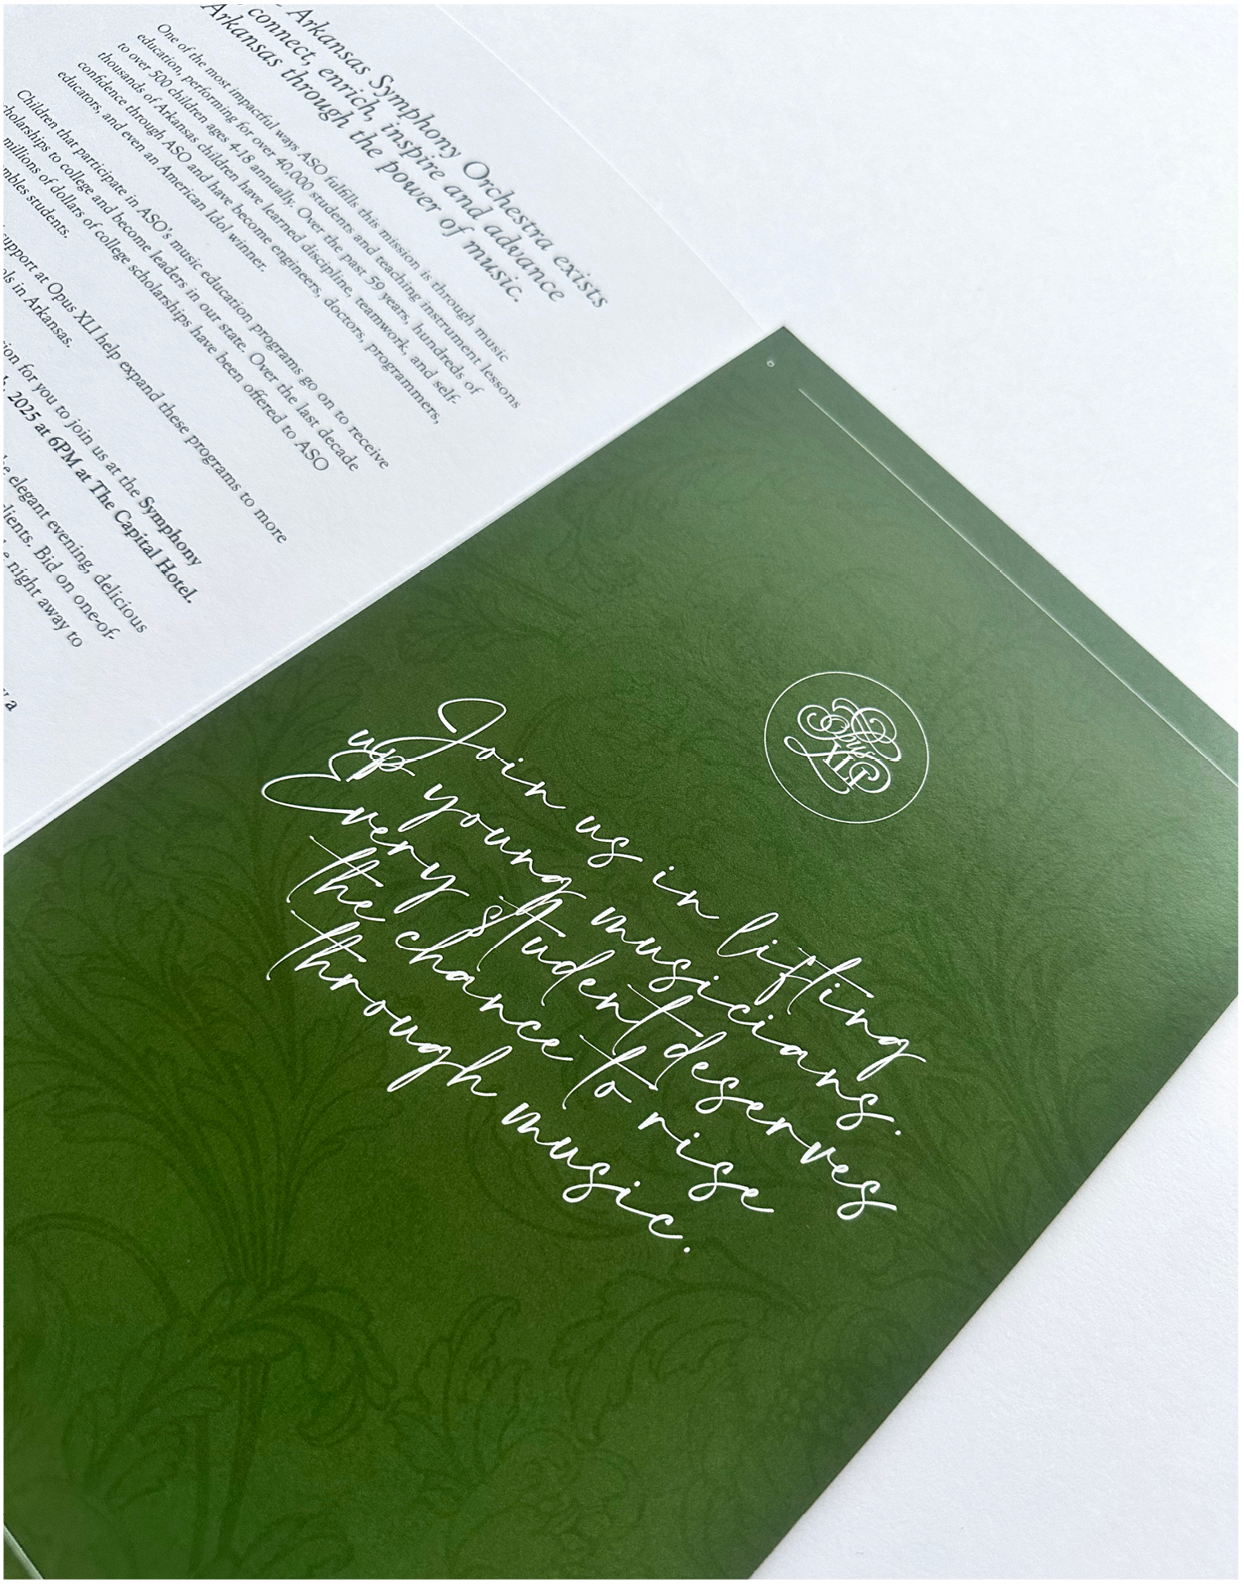 Arkansas Symphony Orchestra exists
connect, enrich, inspire and advance
Arkansas through the power of music.
One of the most impactful ways ASO fulfills this mission is through music
education, performing for over 40,000 students and teaching instrument lessons
to over 500 children ages 4-18 annually. Over the past 59 years, hundreds of
thousands of Arkansas children have learned discipline, teamwork, and self-
confidence through ASO and have become engineers, doctors, programmers,
educators, and even an American Idol winner.
Children that participate in ASO's music education programs go on to receive
scholarships to college and become leaders in our state. Over the last decade
millions of dollars of college scholarships have been offered to ASO
students.
support at Opus XLI help expand these programs to more
in Arkansas.
for you to join us at the Symphony
2025 at 6PM at The Capital Hotel.
elegant evening, delicious
Bid on one-of-
night away to
a
Opus
XLI
Join us in lifting
up young musicians.
Every student deserves
the chance to rise
through music.